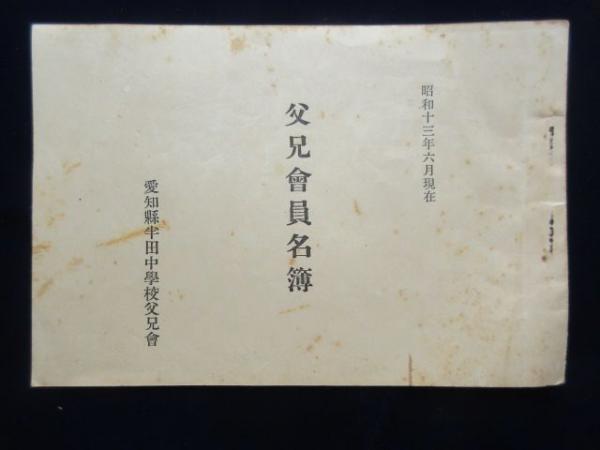 昭和十三年六月現在
父兄會員名簿
愛知縣半田中學校父兄會